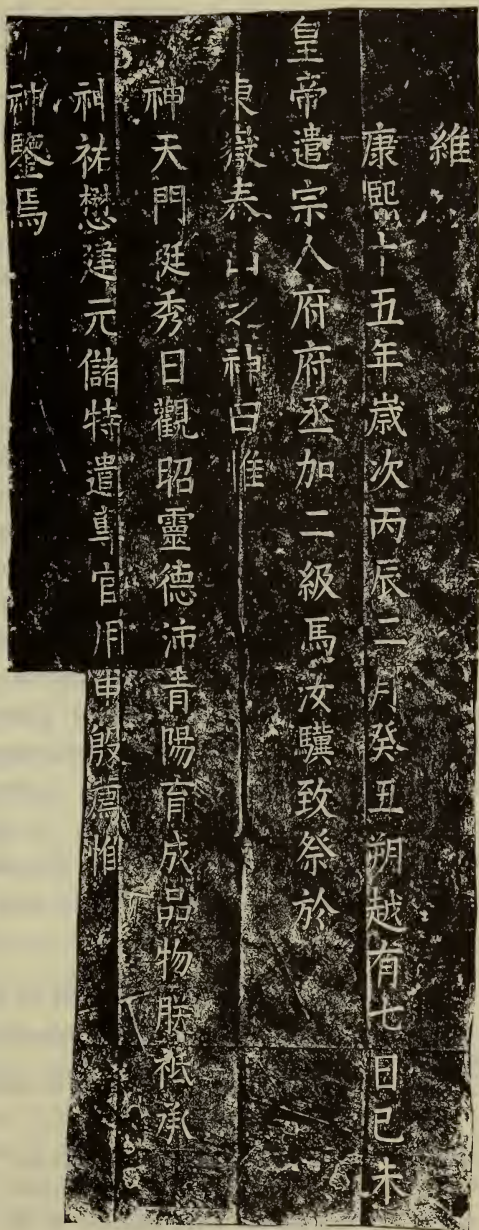 維
康熙十五年歲次丙辰二月癸丑朔越有七日己未
皇帝遣宗人府府丞加二級馬汝驥致祭於
東嶽泰山之神曰惟
神天門挺秀日觀昭靈德沛青陽育成品物朕祗承
神祐懋建元儲特遣專官用申殷薦惟
神鑒焉